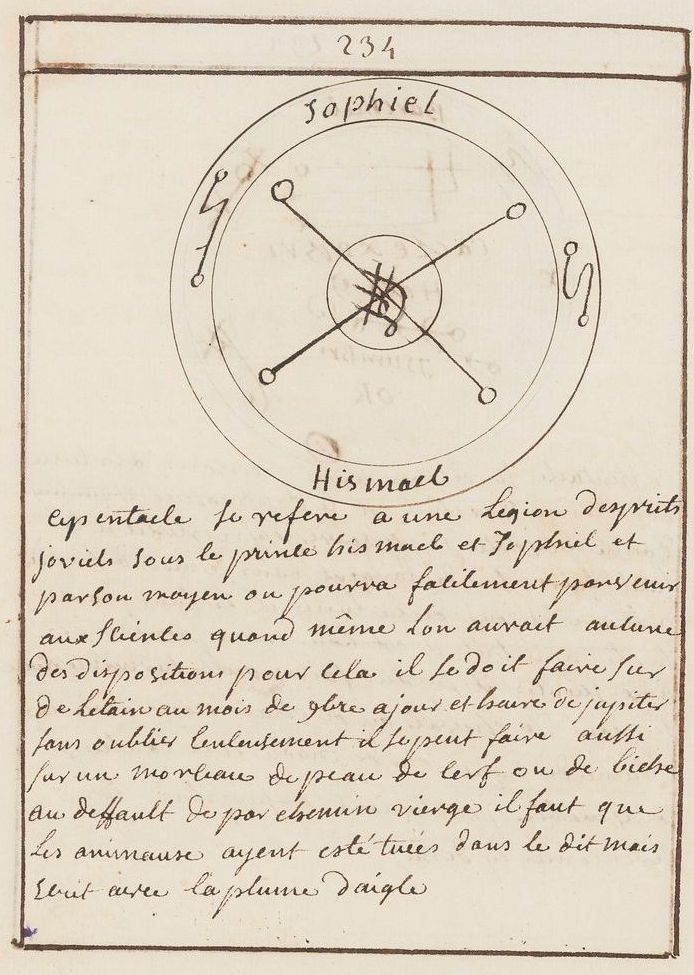 234
Sophiel
Hismael
Cepentacle se refere a une Legion desprits
joviels sous le prince hismael et Sophiel et
par son moyen on pourra facilement parvenir
aux sciences quand même lon aurait aucune
des dispositions pour cela il se doit faire sur
de Letain au mois de 9bre a jour et heure de jupiter
sans oublier lencensement il se peut faire aussi
sur un morceau de peau de cerf ou de biche
au deffault de parchemin vierge il faut que
Les animause ayent esté tuées dans le dit mois
ecrit avec la plume daigle